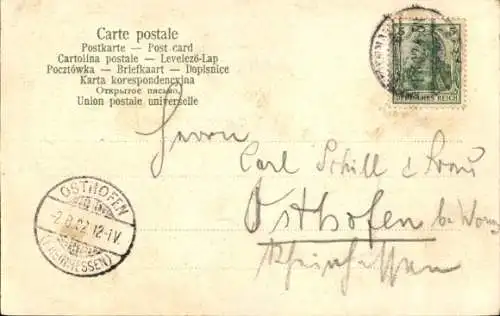 Carte postale
Postkarte — Post card
Cartolina postale — Levelező-Lap
Pocztówka — Briefkaart — Dopisnice
Karta korespondencyjna
Открытое письмо.
Union postale universelle
DEUTSCHES REICH
Herrn
Carl Schill & Frau
Osthofen bei Worms
Rheinhessen
OSTHOFEN
12-1V.
(RHEINHESSEN)